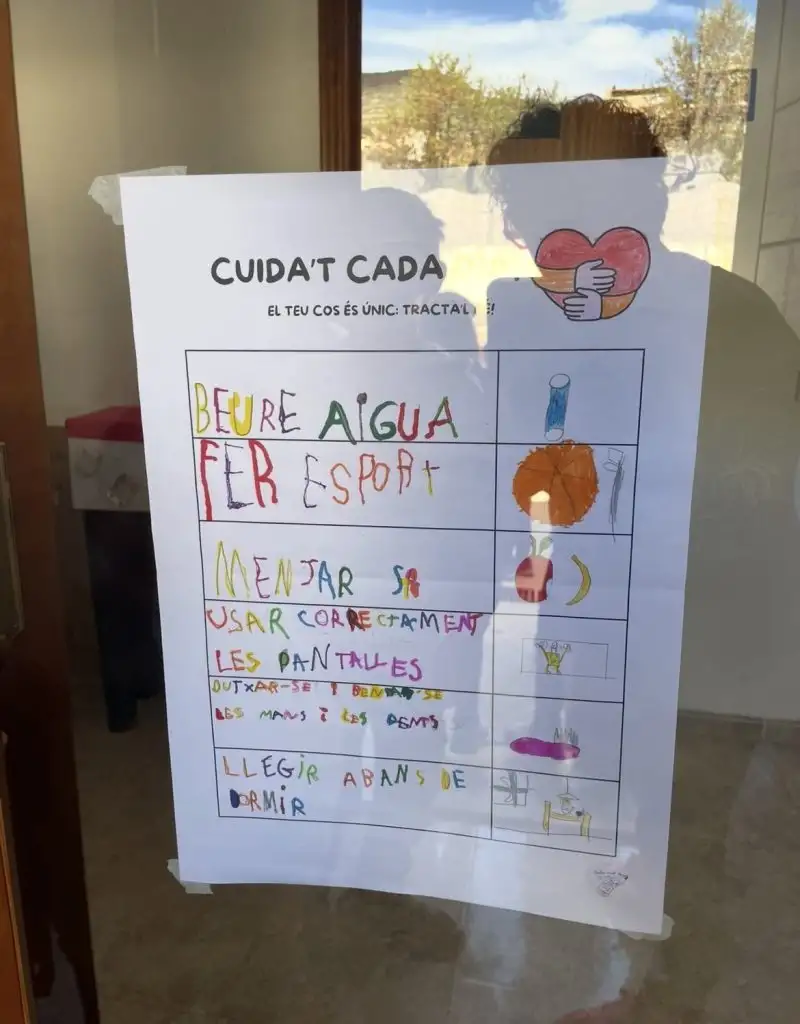 CUIDA'T CADA
EL TEU COS ÉS ÚNIC: TRACTA'L
BEURE AIGUA
FER ESPORT
MENJAR SA
USAR CORRECTAMENT
LES PANTALLES
DUTXAR-SE I RENTAR-SE
LES MANS I LES DENTS
LLEGIR ABANS DE
DORMIR